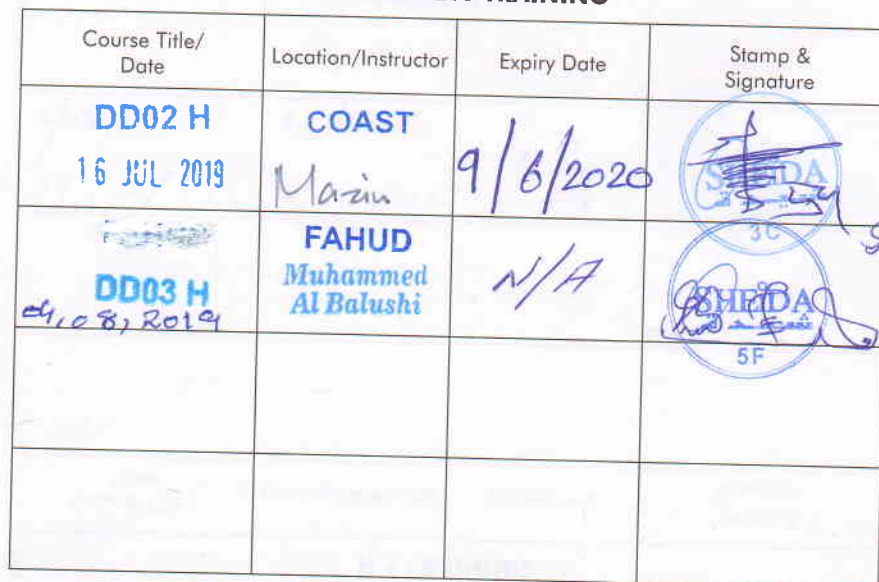 TRAINING
Course Title/
Date
Location/Instructor
Expiry Date
Stamp &
Signature
DD02 H
16 JUL 2019
COAST
Mazin
9/6/2020
SHEIDA
3C
DD03 H
04,08,2019
FAHUD
Muhammed
Al Balushi
N/A
SHEIDA
5F